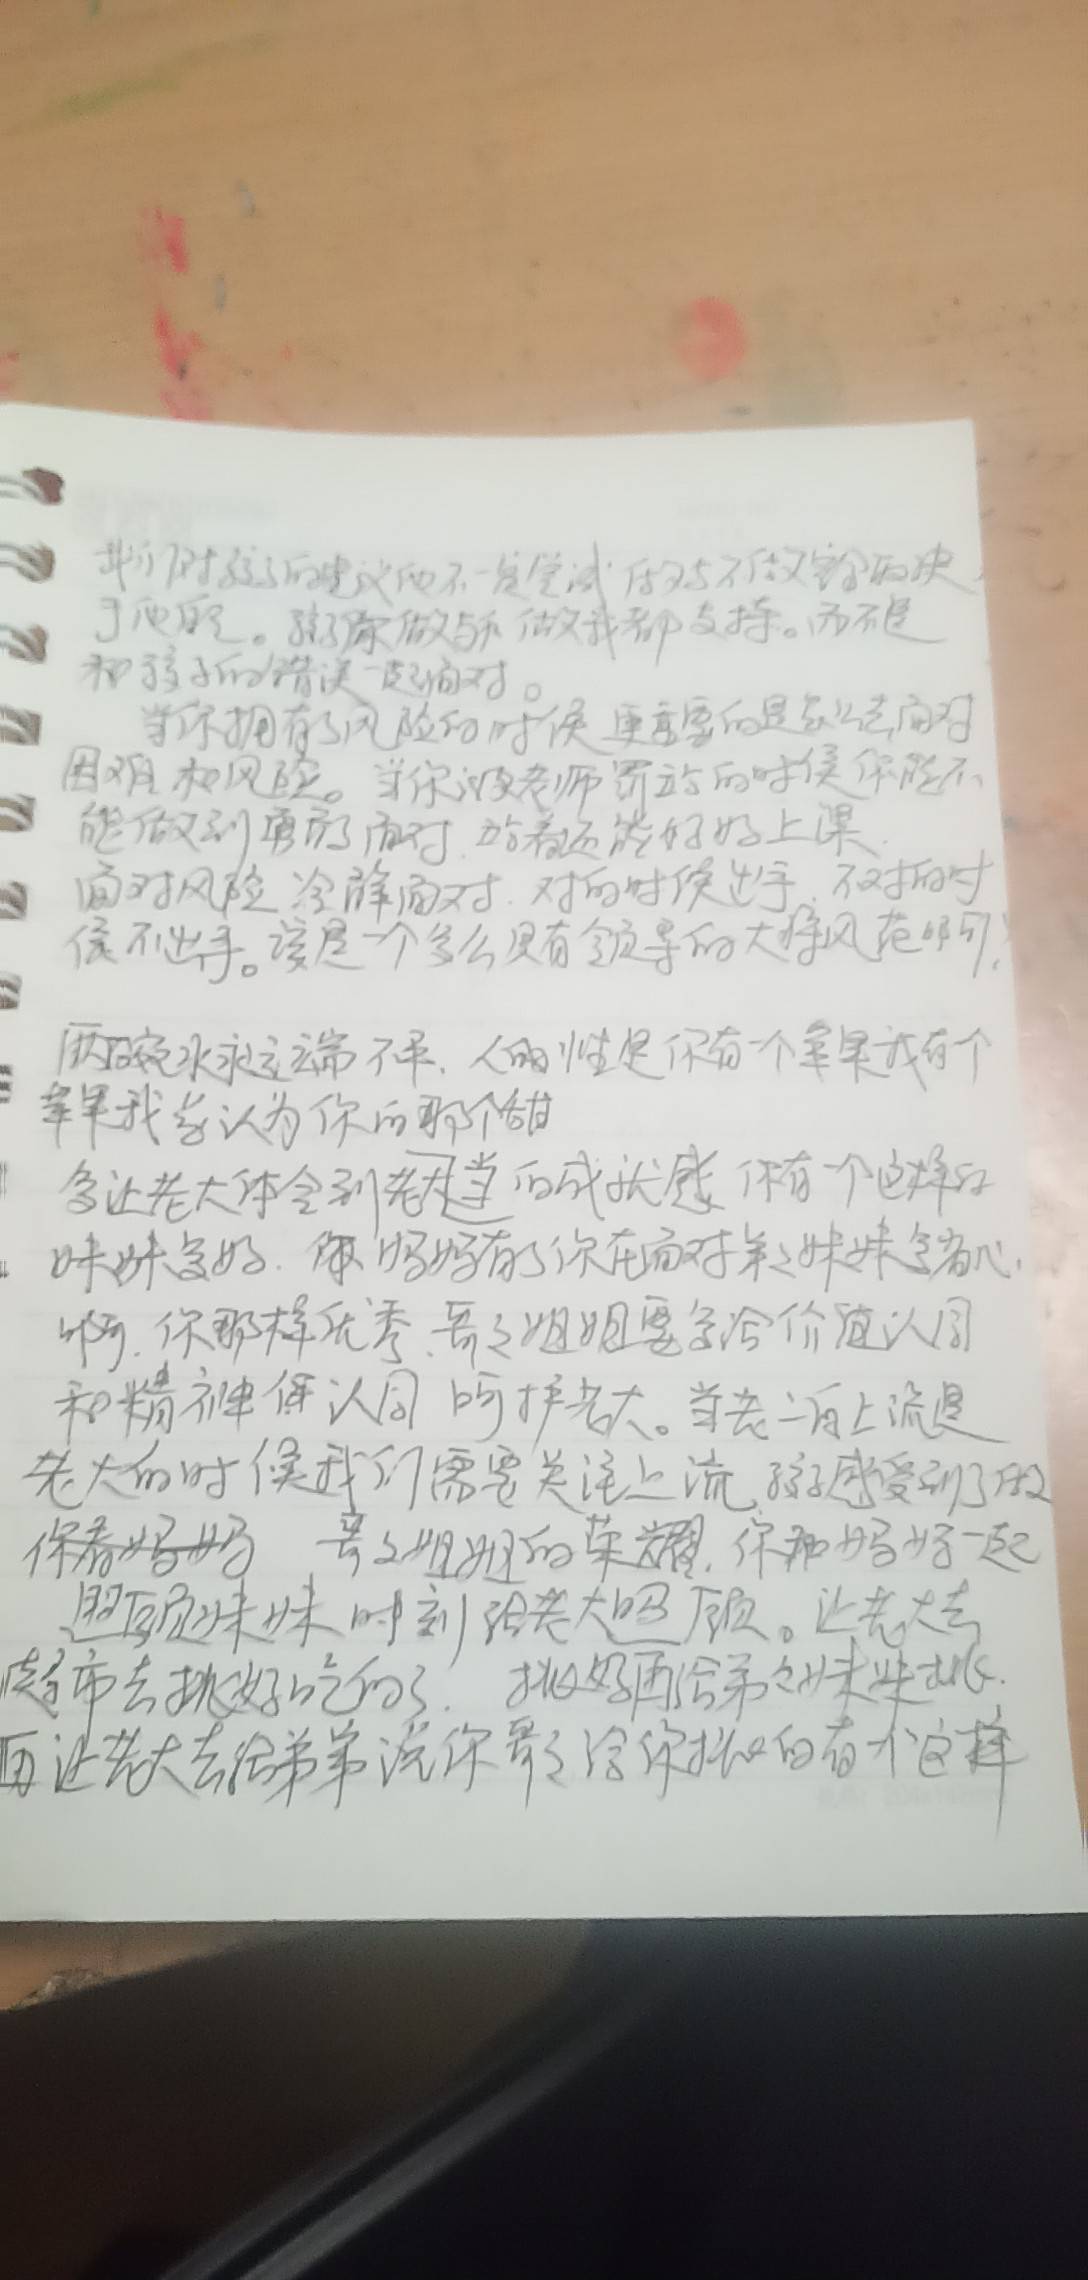 我们对孩子的建议他不一定尝试 做与不做完全取决
于他自己。孩子你做与不做我都支持。而不是
和孩子的错误一起面对。
当你拥有了风险的时候更重要的是怎么去面对
困难和风险。当你被老师罚站的时候你能不
能做到勇敢面对.站着还能好好上课.
面对风险 冷静面对.对的时候出手.不对的时
候不出手。该是一个多么具有领导的大将风范啊!
两碗水永远端不平.人的性是你有一个苹果我有个
苹果我会认为你的那个甜
多让老大体会到老大当的成就感 你有一个这样的
妹妹多好.妈妈有了你在面对弟弟妹妹多省心.
啊.你那样优秀.哥哥姐姐要多给价值认同
和精神 认同 呵护老大。当老二的上流是
老大的时候我们需要关注上流.孩子感受到了做
哥哥姐姐的荣耀.你和妈妈一起
照顾妹妹时刻 老大 照顾。让老大去
超市去挑好吃的了. 挑好再给弟弟妹妹挑.
再让老大去给弟弟说你哥哥给你挑的有个这样